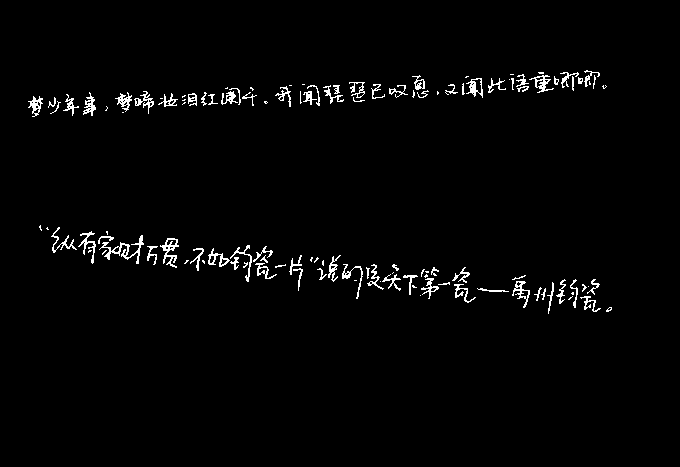 梦少年事，梦啼妆泪红阑干。我闻琵琶已叹息，又闻此语重唧唧。
“纵有家财万贯，不如钧瓷一片”说的是天下第一瓷——禹州钧瓷。